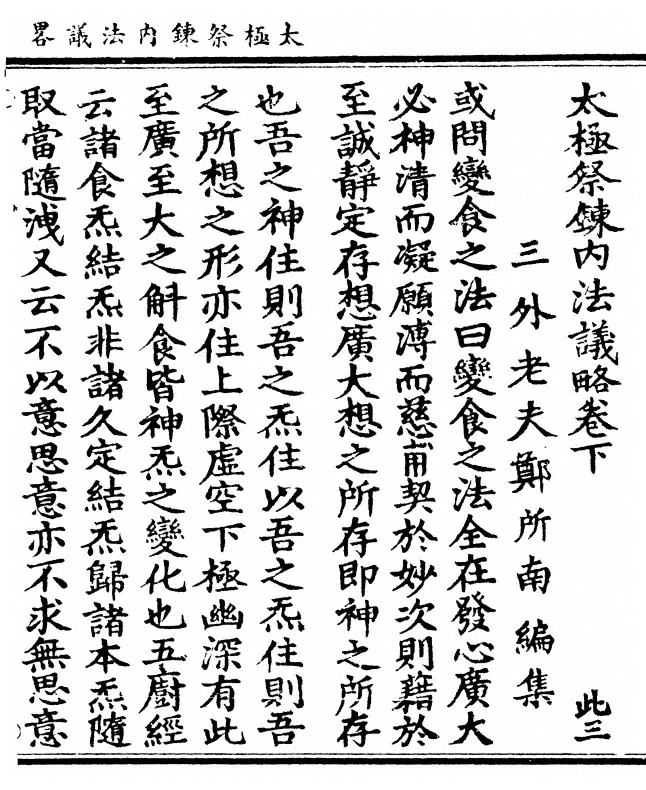 太極祭鍊内法議畧
太極祭鍊内法議略卷下
此三
三外老夫鄭所南編集
或問變食之法曰變食之法全在發心廣大
必神清而凝願溥而慈甯契於妙次則藉於
至誠靜定存想廣大想之所存即神之所存
也吾之神住則吾之炁住以吾之炁住則吾
之所想之形亦住上際虛空下極幽深有此
至廣至大之斛食皆神炁之變化也五廚經
云諸食炁結炁非諸久定結炁歸諸本炁隨
取當隨洩又云不以意思意亦不求無思意